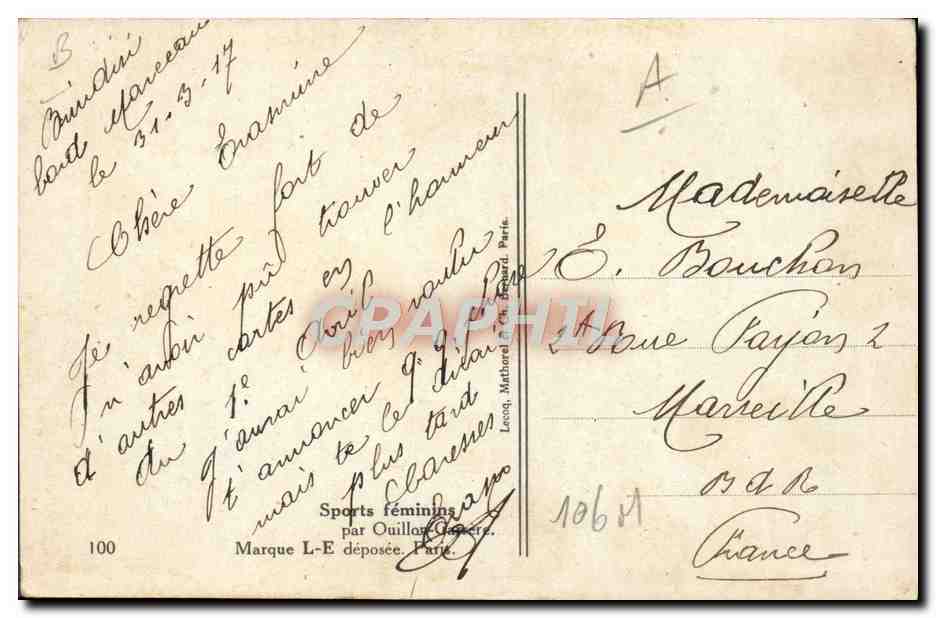 B
Brindisi
bard Marceau
le 31-3-17
Chère Erasmine
Je regrette fort de
n'avoir pû trouver
d'autres cartes en l'honneur
du 1e Avril
j'aurai bien voulu
t'annoncer
mais te le dirai
plus tard
Caresses
Sports féminins
par Ouillon-Carrère.
100
Marque L-E déposée. Paris.
Lecoq, Mathorel & Ch. Bernard. Paris.
CPARAMA
A
Mademoiselle
E. Bouchon
2A Roue Farjon 2
Marseille
B d R
France
106